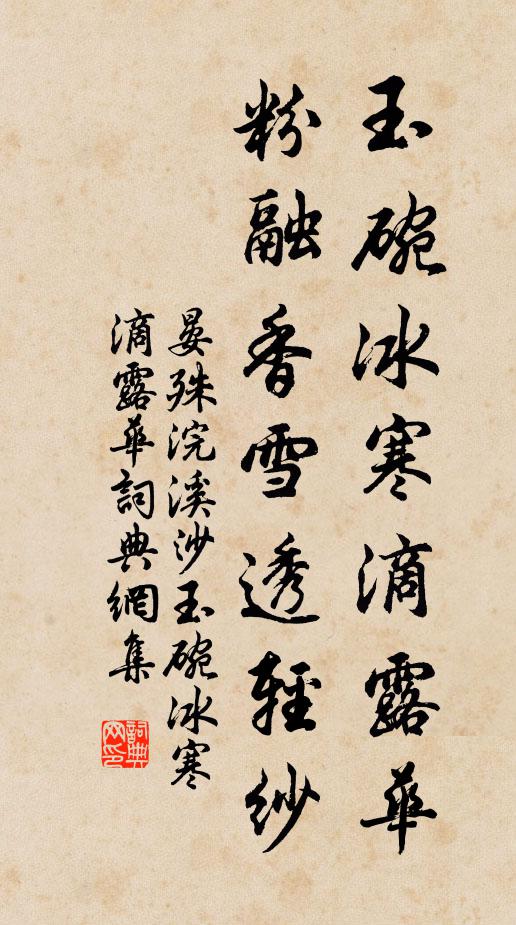 玉碗冰寒滴露華
粉融香雪透輕紗
晏殊浣溪沙玉碗冰寒
滴露華詞典網集
詞典
网印